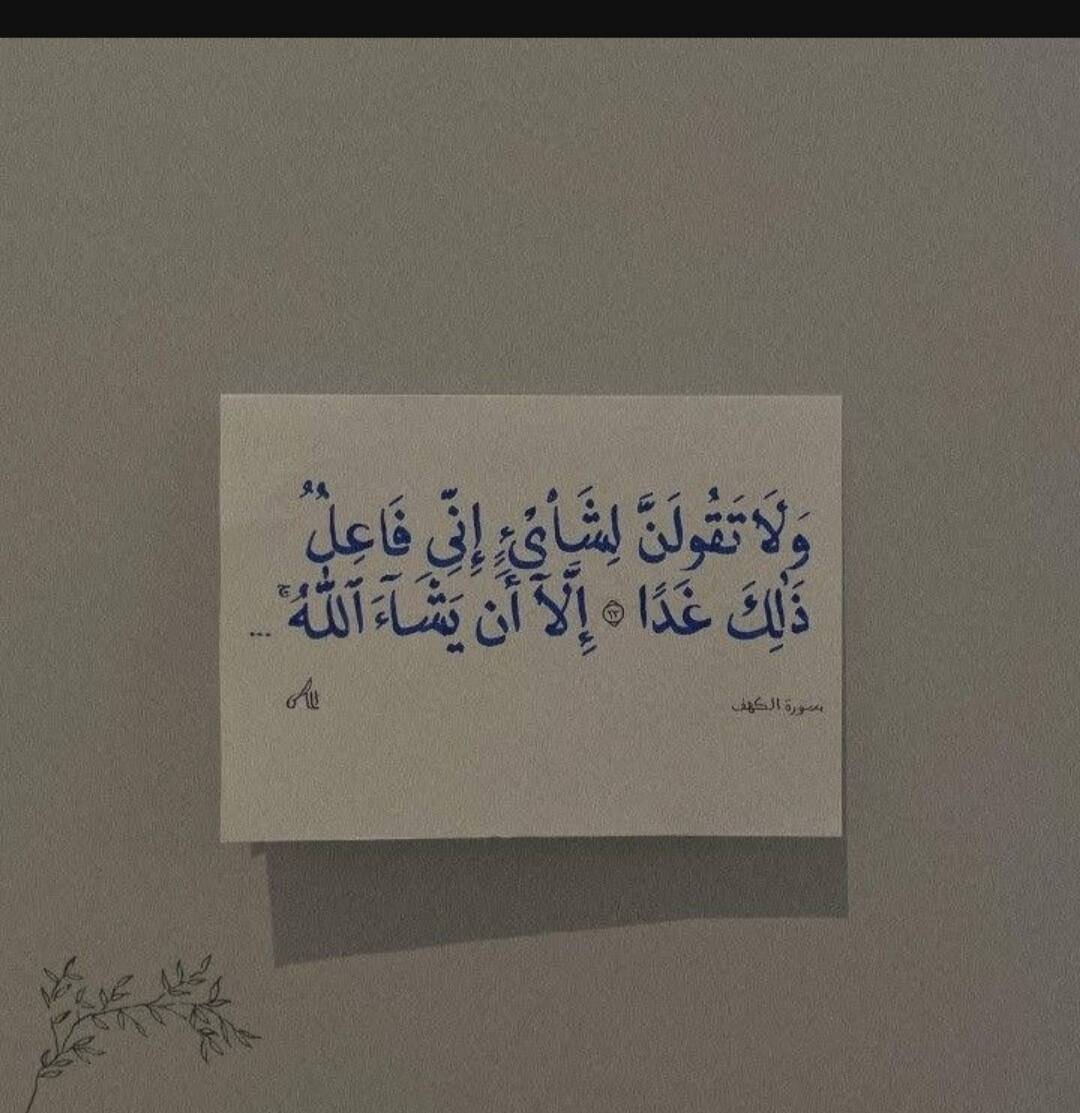 وَلَا تَقُولَنَّ لِشَا۟ىْءٍ إِنِّي فَاعِلٌ
ذَٰلِكَ غَدًا ۝٢٣ إِلَّآ أَن يَشَآءَ ٱللَّهُ ۚ ...
سورة الكهف